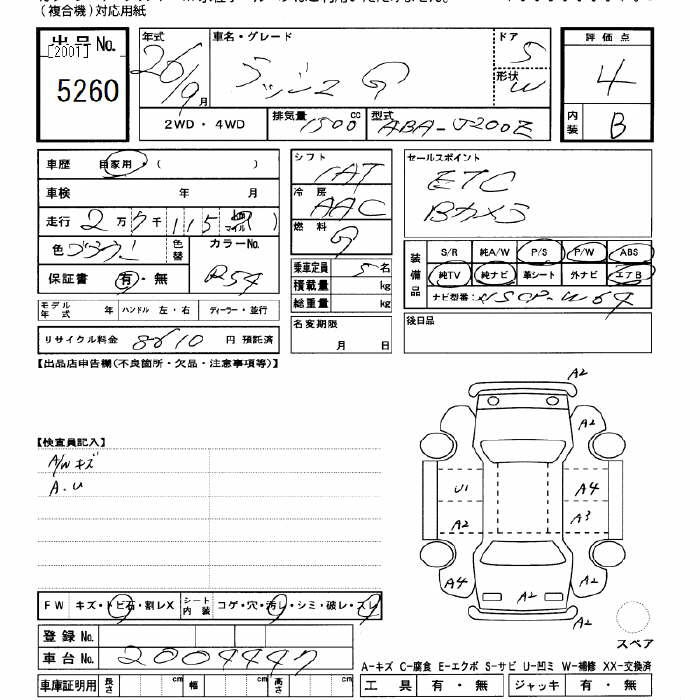 (複合機)対応用紙
出品No.
[2001]
5260
年式
26/9月
車名・グレード
ラッシュ G
ドア
5
形状
W
評価点
4
内装
B
2WD・4WD
排気量 1500 cc
型式 ABA-J200E
車歴 自家用・( )
車検 年 月
走行 2万7千115
色
色替
カラーNo.
R54
保証書 有・無
モデル年式 年 ハンドル 左・右 ディーラー・並行
リサイクル料金 8610 円 預託済
シフト
IAT
冷房
AAC
燃料
G
乗車定員 5名
積載量 kg
総重量 kg
名変期限
月 日
セールスポイント
ETC
Bカメラ
装備品
S/R 純A/W P/S P/W ABS
純TV 純ナビ 革シート 外ナビ エアB
ナビ型番: NSCP-W64
後日品
【出品店申告欄(不良箇所・欠品・注意事項等)】
【検査員記入】
A/W キズ
A.U
A2
A2
U1
A4
A2
A3
A4
A2
A2
スペア
FW キズ・トビ石・割レX シート内装 コゲ・穴・汚レ・シミ・破レ・スレ
登録No.
車台No. 2004447
車庫証明用 長さ cm 幅 cm 高さ cm
A-キズ C-腐食 E-エクボ S-サビ U-凹ミ W-補修 XX-交換済
工具 有・無 ジャッキ 有・無